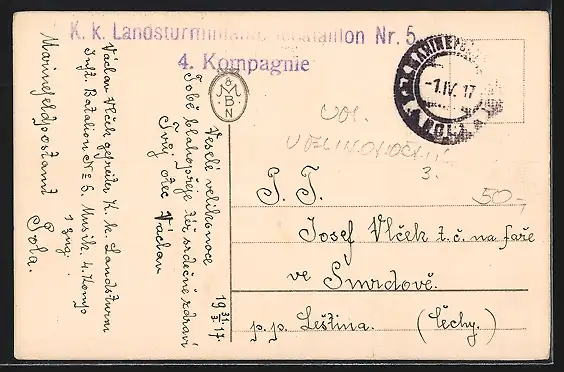 K. k. Landsturminfanteriebataillon Nr. 5
4. Kompagnie
MARINEFELDPOSTAMT
-1.IV.17
POLA
M
B
N
VOL.
VELIKONOČNÍ
3.
50,-
P. T.
Josef Vlček t. č. na faře
ve Smrdově.
p. p. Leština. (Čechy.)
19 31/3 17.
Veselé velikonoce
Tobě blahopřeje též srdečné zdraví
Tvůj otec Václav
Václav Vlček gefreiter K. k. Landsturm
Inft. Batalion Nº 5. Musik. 4. Komp
1 zug.
Marinefeldpostamt Pola.